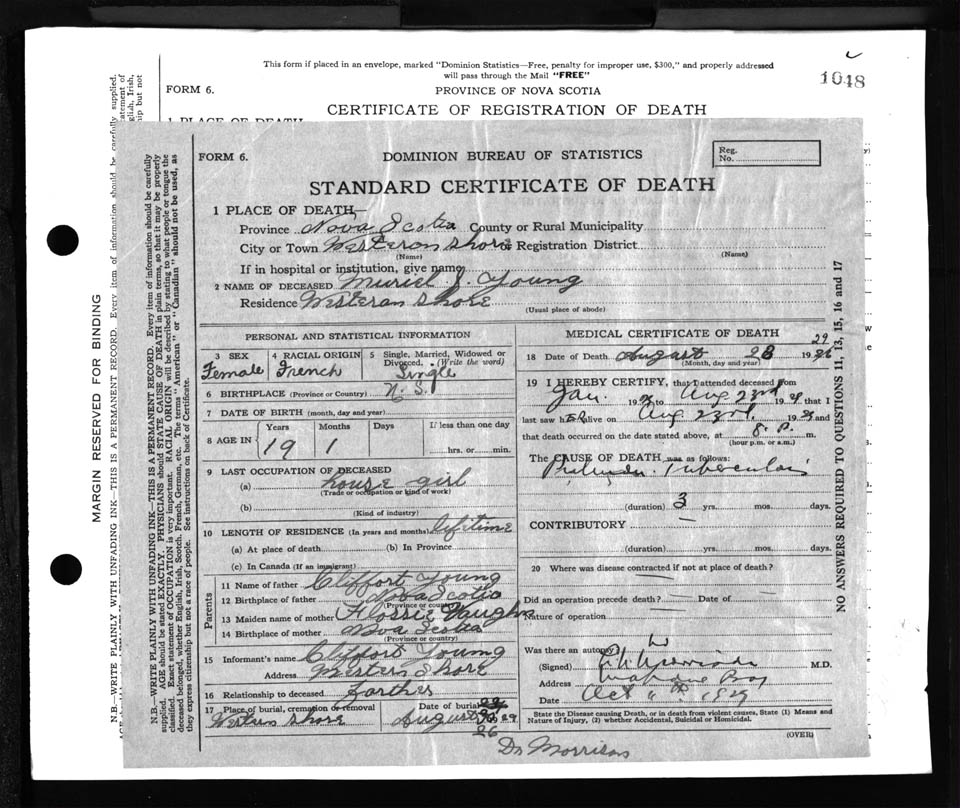 This form if placed in an envelope, marked "Dominion Statistics—Free, penalty for improper use, $300," and properly addressed
will pass through the Mail "FREE"
1048
FORM 6.
PROVINCE OF NOVA SCOTIA
CERTIFICATE OF REGISTRATION OF DEATH
1 PLACE OF DEATH
MARGIN RESERVED FOR BINDING
N.B.—WRITE PLAINLY WITH UNFADING INK—THIS IS A PERMANENT RECORD. Every item of information should be carefully supplied. AGE should be stated EXACTLY. PHYSICIANS should STATE CAUSE OF DEATH in plain terms, so that it may be properly
classified. Exact statement of OCCUPATION is very important. RACIAL ORIGIN will be described by stating to what people or tongue the
deceased belonged, whether English, Irish, Scotch, French, German, etc. The terms "American" or "Canadian" should not be used, as
they express citizenship but not a race of people. See instructions on back of Certificate.
FORM 6.
DOMINION BUREAU OF STATISTICS
Reg. No.
STANDARD CERTIFICATE OF DEATH
1 PLACE OF DEATH,—
Province Nova Scotia County or Rural Municipality
City or Town Westeran Shore Registration District
(Name) (Name)
If in hospital or institution, give name
2 NAME OF DECEASED Muriel J. Young
Residence Westeran Shore
(Usual place of abode)
PERSONAL AND STATISTICAL INFORMATION
3 SEX Female
4 RACIAL ORIGIN French
5 Single, Married, Widowed or Divorced. (Write the word) Single
6 BIRTHPLACE (Province or Country) N. S.
7 DATE OF BIRTH (month, day and year)
8 AGE IN Years 19 Months 1 Days If less than one day hrs. or min.
9 LAST OCCUPATION OF DECEASED
(a) house girl
(Trade or occupation or kind of work)
(b)
(Kind of industry)
10 LENGTH OF RESIDENCE (In years and months) lifetime
(a) At place of death (b) In Province
(c) In Canada (If an immigrant)
Parents
11 Name of father Cliffort Young
12 Birthplace of father Nova Scotia
(Province or country)
13 Maiden name of mother Flossie Vaughn
14 Birthplace of mother Nova Scotia
(Province or country)
15 Informant's name Cliffort Young
Address Western Shore
16 Relationship to deceased Farther
17 Place of burial, cremation or removal Western Shore
Date of burial August 26 1929
26
MEDICAL CERTIFICATE OF DEATH
29
18 Date of Death August 23 19
(Month, day and year)
19 I HEREBY CERTIFY, that I attended deceased from
Jan. 19 to Aug 23rd 1929 that I
last saw her alive on Aug 23rd. 1929 and
that death occurred on the date stated above, at 8. P. m.
(hour p.m. or a.m.)
The CAUSE OF DEATH was as follows:
Tuberculosis
(duration) 3 yrs. mos. days.
CONTRIBUTORY —
(duration) yrs. mos. days.
20 Where was disease contracted if not at place of death?
Did an operation precede death? Date of
Nature of operation
Was there an autopsy?
(Signed) M.D.
Address Mahone Bay
Date Oct 11th 1929
State the Disease causing Death, or in death from violent causes, State (1) Means and
Nature of Injury, (2) whether Accidental, Suicidal or Homicidal.
(OVER)
NO ANSWERS REQUIRED TO QUESTIONS 11, 13, 15, 16 and 17
Dr Morrison